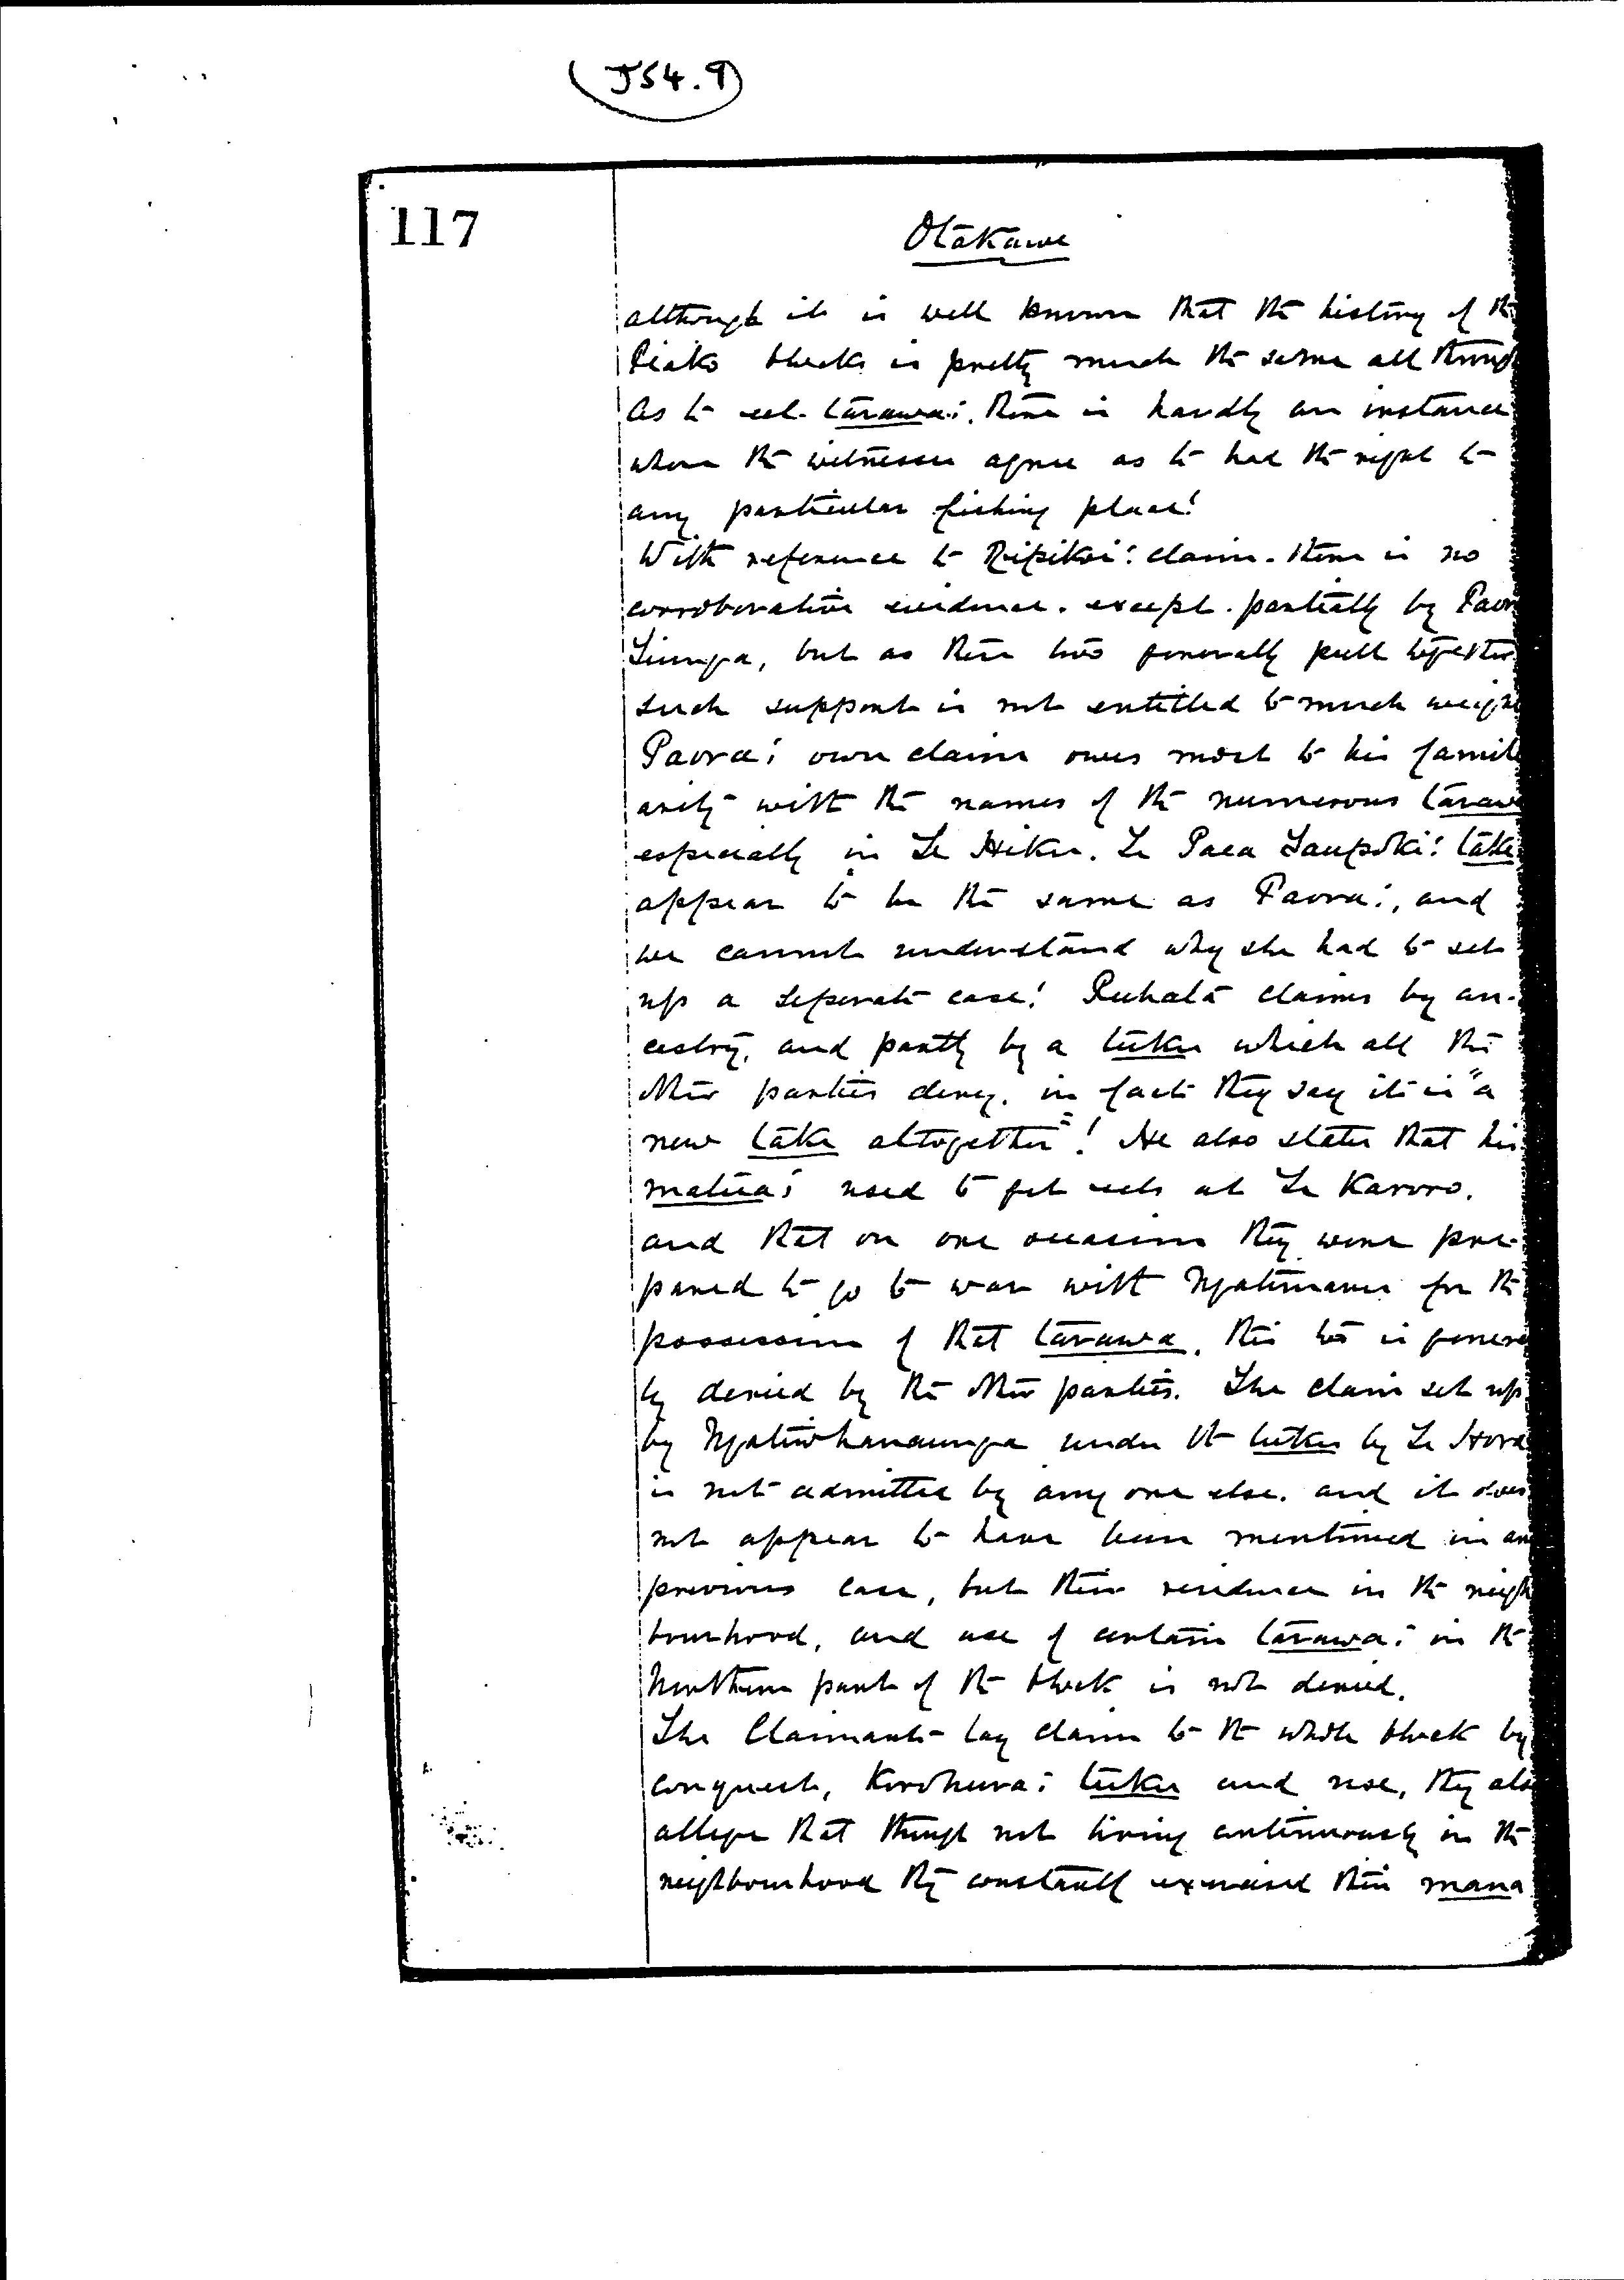 (J54.9)
117
Otakawe
although it is well known that the history of the
Piako blocks is pretty much the same all throug
As to eel-tarawas, there is hardly an instance
where the witnesses agree as to had the right to
any particular fishing place!
With reference to Ripikoi's claim. there is no
corroborative evidence. except partially by Paor
Tiunga, but as these two generally pull together
such support is not entitled to much weigh
Paora's own claim owes most to his famili
arity with the names of the numerous taraw
especially in Te Hiku. Te Paea Taupoki's take
appear to be the same as Paora's, and
we cannot understand why she had to set
up a seperate case! Ruhata claims by an-
cestry, and partly by a tuku which all the
other parties deny. in fact they say it is "a
new take altogether"! He also states that his
matuas used to get eels at Te Karoro.
and that on one occasion they were pre-
pared to go to war with Ngatimaru for the
possession of that tarawa, this too is genera
ly denied by the other parties. The claim set up
by Ngatiwhanaunga under the tuku by Te Hora
is not admitted by any one else. and it does
not appear to have been mentioned in an
previous case, but their residence in the neigh
bourhood, and use of certain tarawas in the
Northern part of the block is not denied.
The Claimants lay claim to the whole block by
conquest, Korohura's tuku and use, they als
allege that though not living continuously in the
neighbourhood they constantly exercised their mana